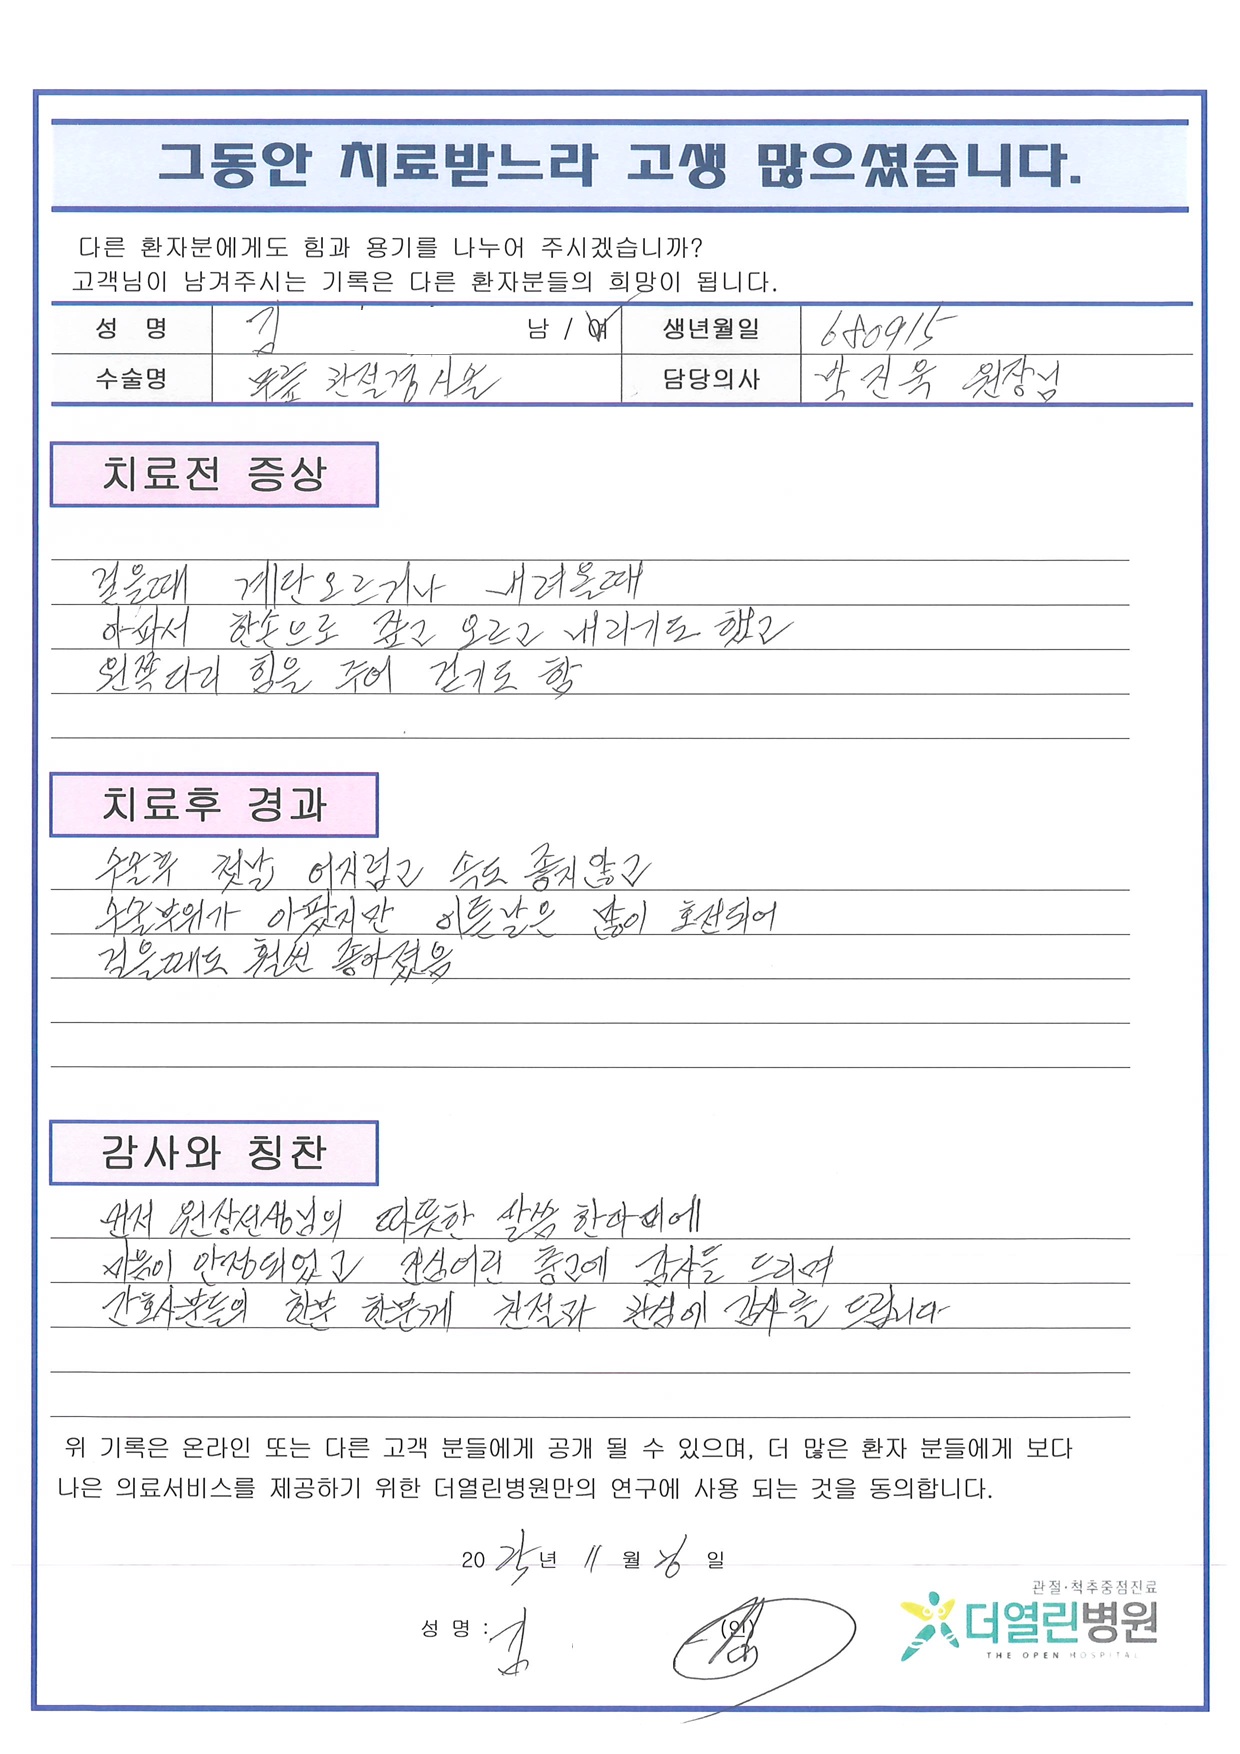 그동안 치료받느라 고생 많으셨습니다.
다른 환자분에게도 힘과 용기를 나누어 주시겠습니까?
고객님이 남겨주시는 기록은 다른 환자분들의 희망이 됩니다.
성 명 김 남 / 여 생년월일 680915
수술명 무릎 관절경시술 담당의사 박진욱 원장님
치료전 증상
걸을때 계단오르거나 내려올때
아파서 한손으로 잡고 오르고 내리기도 했고
왼쪽다리 힘을 주어 걷기도 함
치료후 경과
수술후 첫날 어지럽고 속도 좋지않고
수술부위가 아팠지만 이튿날은 많이 호전되어
걸을때도 훨씬 좋아졌음
감사와 칭찬
먼저 원장선생님의 따뜻한 말씀 한마디에
마음이 안정되었고 진심어린 충고에 감사를 드리며
간호사분들의 한분 한분께 친절과 관심에 감사를 드립니다
위 기록은 온라인 또는 다른 고객 분들에게 공개 될 수 있으며, 더 많은 환자 분들에게 보다
나은 의료서비스를 제공하기 위한 더열린병원만의 연구에 사용 되는 것을 동의합니다.
20 년 11 월 일
성 명 : 김 (인)
관절·척추중점진료
더열린병원
THE OPEN HOSPITAL